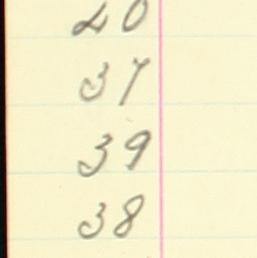 40
37
39
38